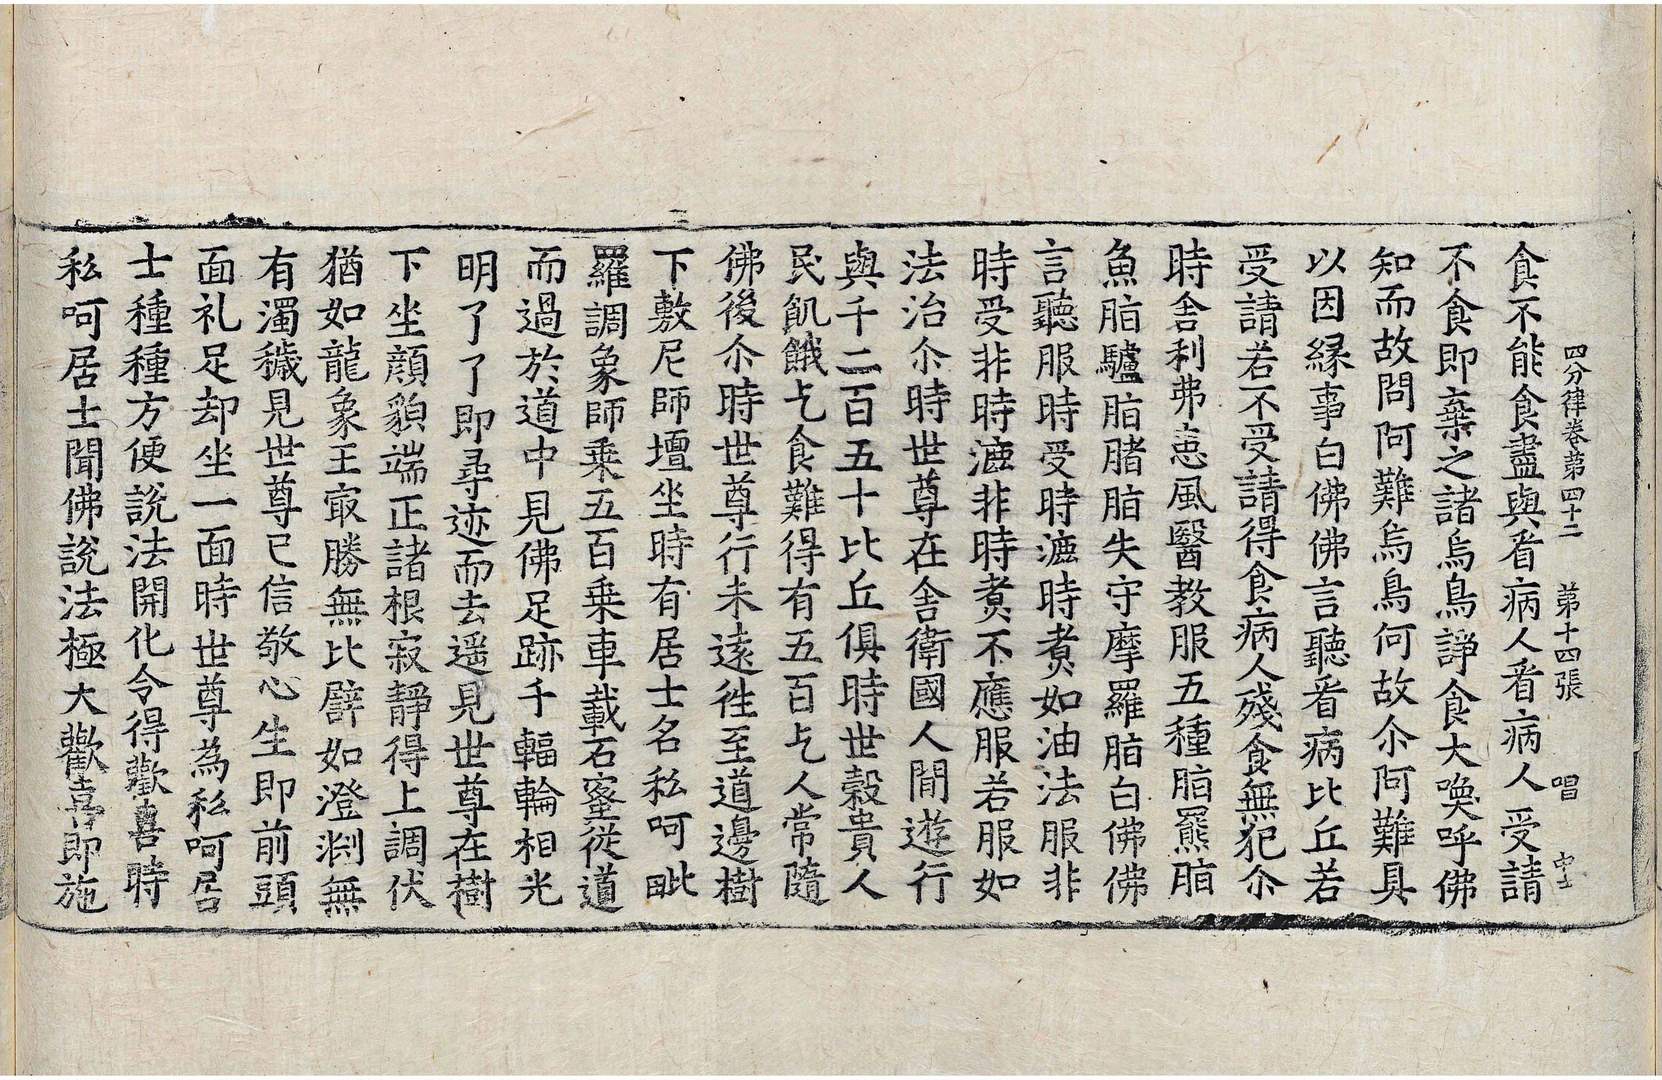 四分律卷第四十二 第十四張 唱 中士
食不能食盡與看病人看病人受請
不食即棄之諸烏鳥諍食大喚呼佛
知而故問阿難烏鳥何故尒阿難具
以因緣事白佛佛言聽看病比丘若
受請若不受請得食病人殘食無犯尒
時舍利弗患風醫教服五種脂羆脂
魚脂驢脂豬脂失守摩羅脂白佛佛
言聽服時受時漉時煑如油法服非
時受非時漉非時煑不應服若服如
法治尒時世尊在舍衛國人間遊行
與千二百五十比丘俱時世穀貴人
民飢餓乞食難得有五百乞人常隨
佛後尒時世尊行未遠徃至道邊樹
下敷尼師壇坐時有居士名私呵毗
羅調象師乗五百乗車載石蜜從道
而過於道中見佛足跡千輻輪相光
明了了即尋迹而去遥見世尊在樹
下坐顏貌端正諸根寂靜得上調伏
猶如龍象王㝡勝無比譬如澄渕無
有濁穢見世尊已信敬心生即前頭
面礼足却坐一面時世尊為私呵居
士種種方便說法開化令得歡喜時
私呵居士聞佛說法極大歡喜即施